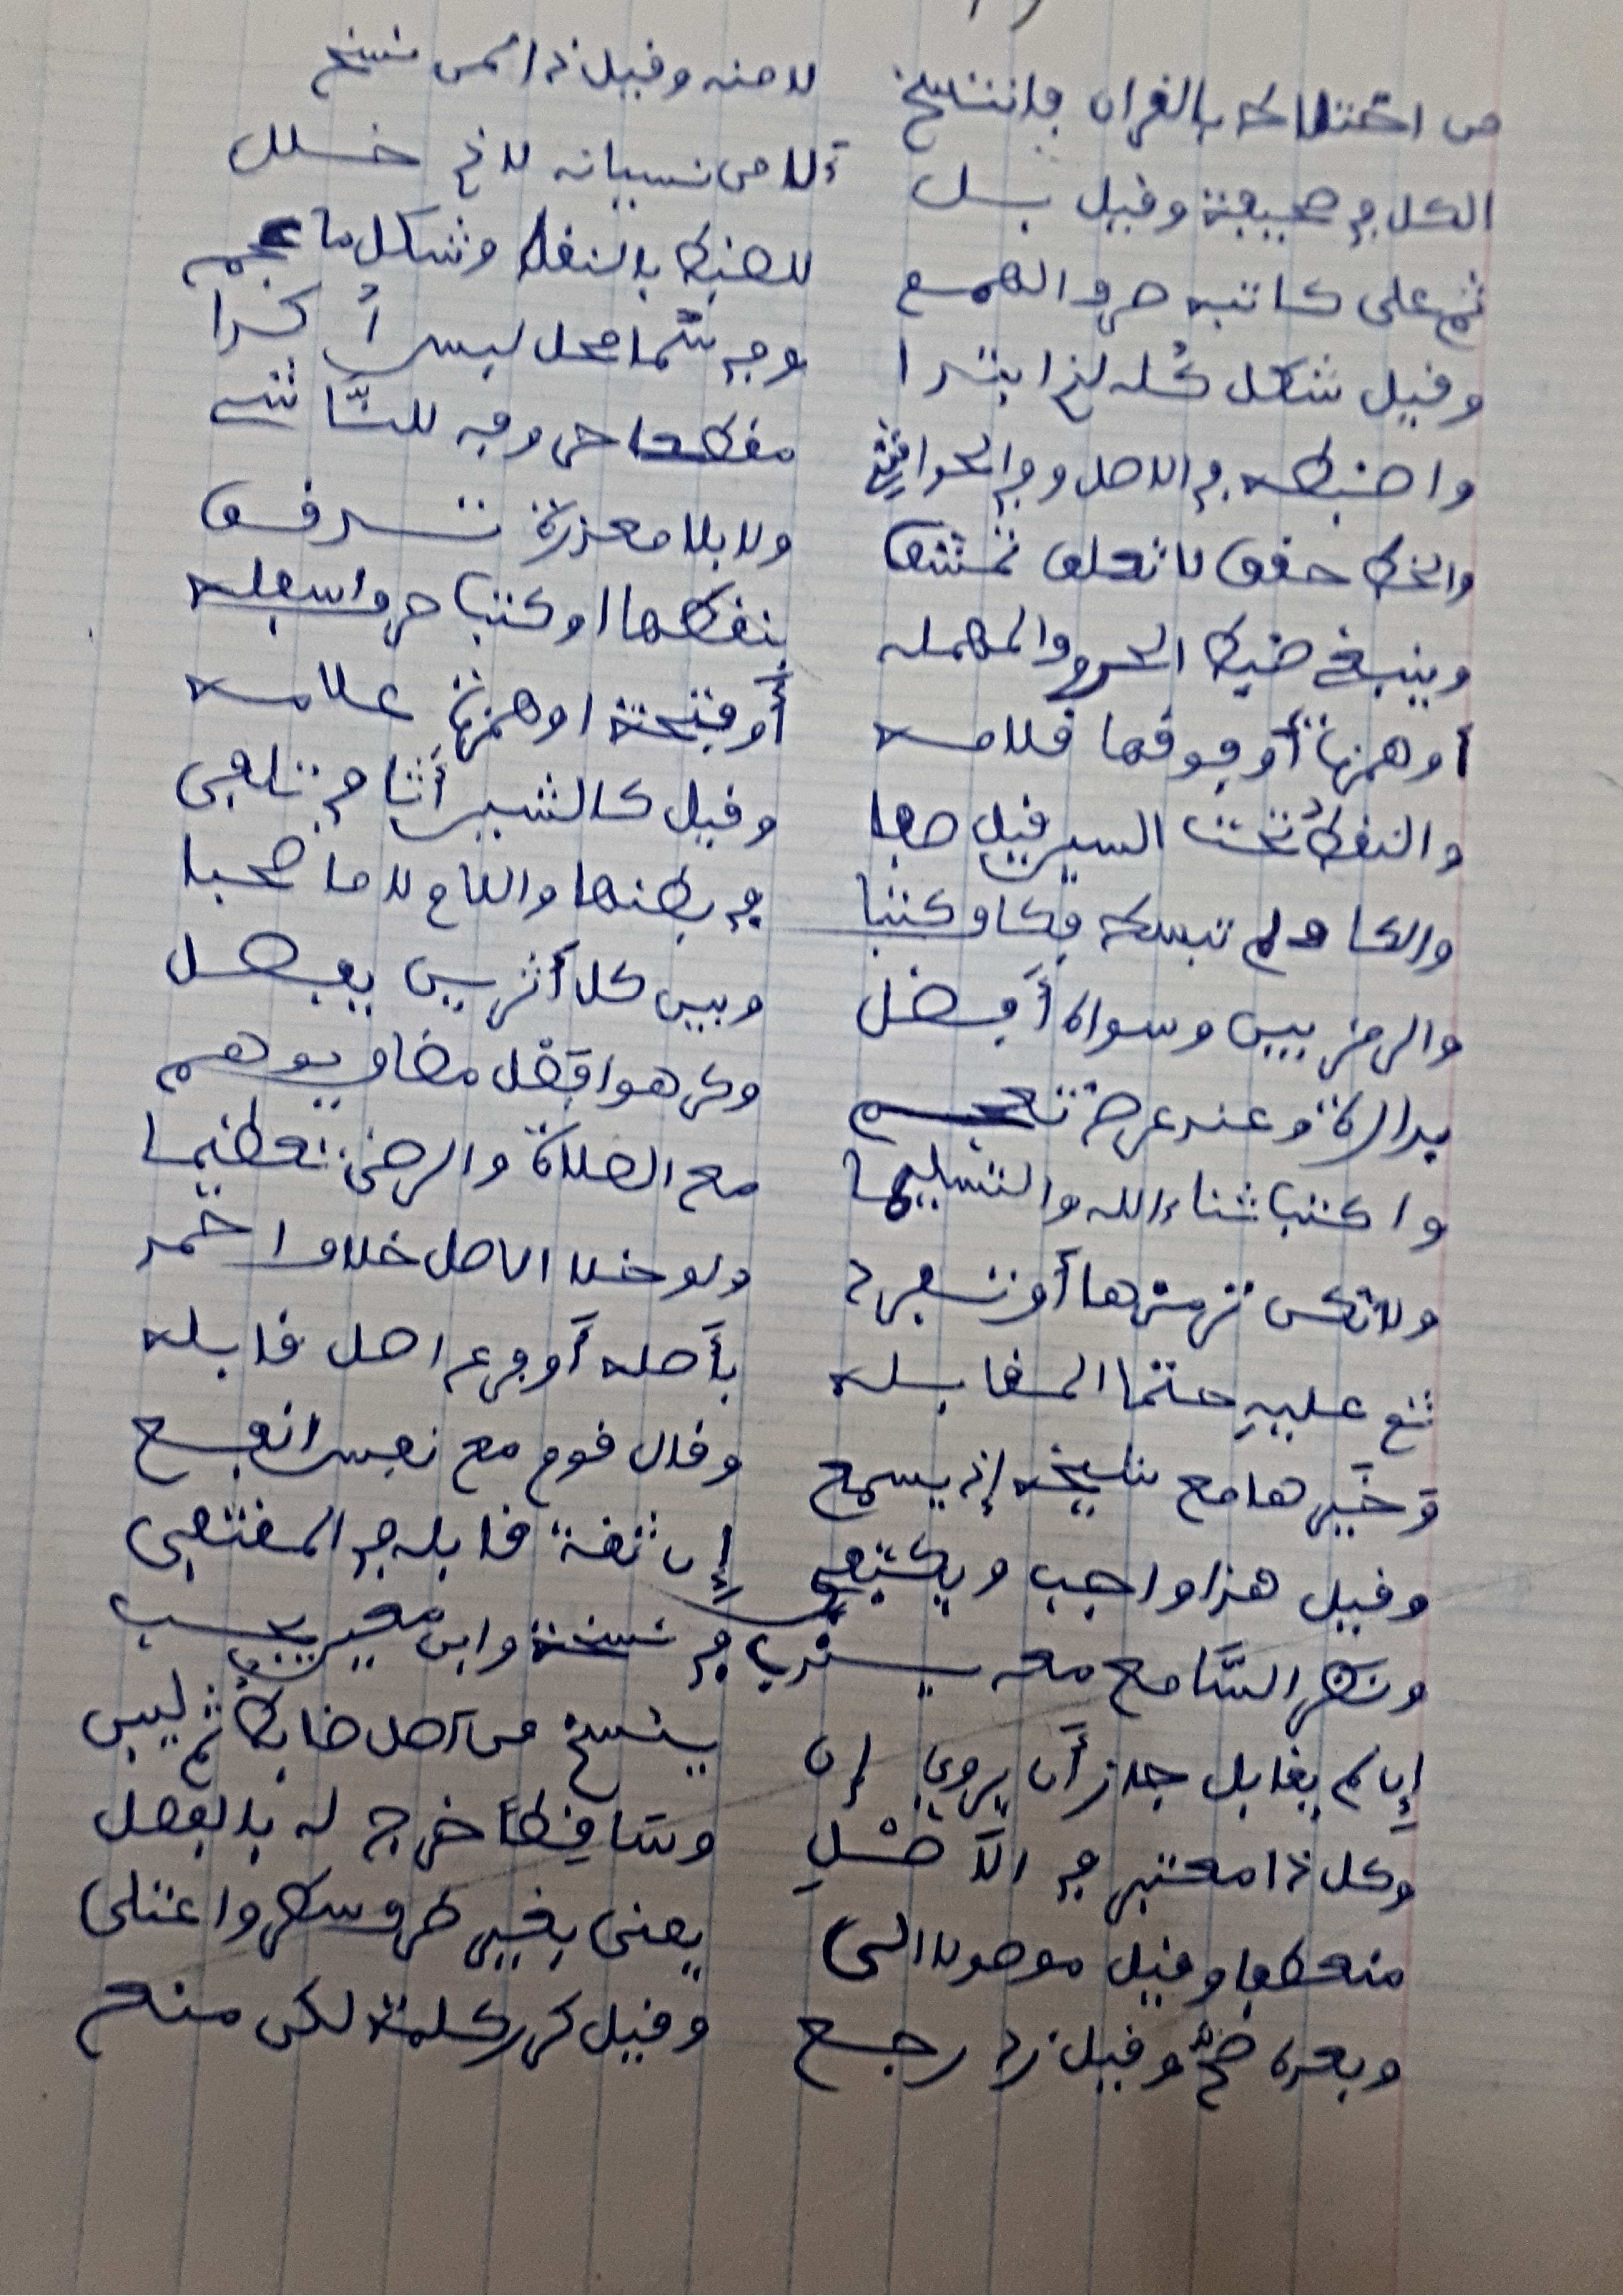 من اختلاطه بالقران فانتسخ لامنه وقيل ذا لمن نسخ
الكل في صحيفة وقيل بل لآمن نسيانه لا ذي خلل
ثم على كاتبه صرف الهمم للضبط بالنقط وشكل ما عجم
وقيل شكل كُله لذي ابتدا وفي سُما محل لبس أُكدا
واضبطه في الاصل وفي الحواشي مقطعا حروفه للنَّاشي
والخط حقق لا تعلق تمشق ولا بلا معذرة تدقق
وينبغي ضبط الحروف المهمله بنقطها او كتب حرف اسفله
أو همزها أو فوقها قلامه أو فتحة او همزة علامه
والنقطُ تحت السين قيل صفا وقيل كالشين أثافي تلفى
والكاف لم تبسط فكاف كتبا في بطنها واللام لاما صحبا
والرمز بين وسواه أفضل وبين كل أثرين يفصل
بدارة وعند عرض تعجم وكرهوا فصل مضاف يوهم
واكتب ثناء الله والتسليما مع الصلاة والرضى تعظيما
ولا تكن ترمزها أو تفرد ولو خلا الاصل خلاف احمد
ثم عليهِ حتما المقابله بأَصله أَو فرع اصل قابله
وَخَيرها مع شيخه إذ يسمع وقال قوم مع نفس انفع
وقيل هذا واجب ويكتفى إن ثقة قابله في المقتفى
ونظر السَّامع معه يندب في نسخة وابن معين يجب
إن لم يقابل جاز أَن يروي إن ينسخ من اصل ضابط ثم ليبن
وكل ذا معتبر في الأصْلِ وساقِطاً خرج له بالفصل
منعطفا وقيل موصولا الى يمنى بغير طرف سطر واعتلى
وبعده صحَّ وقيل زد رجع وقيل كرر كلمة لكن منع